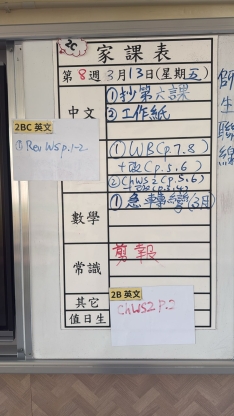 2C
家課表
第8週3月13日(星期五)
中文
①抄第六課
②工作紙
2BC 英文
①Rev WS p.1-2
①WB(p.7.8)
+改(p.5,6)
②ChWS2(p.5,6)
數學
①急轉彎(3月)
常識
剪報
其它
2B 英文
ChWS2 P.2
值日生
師生聯線